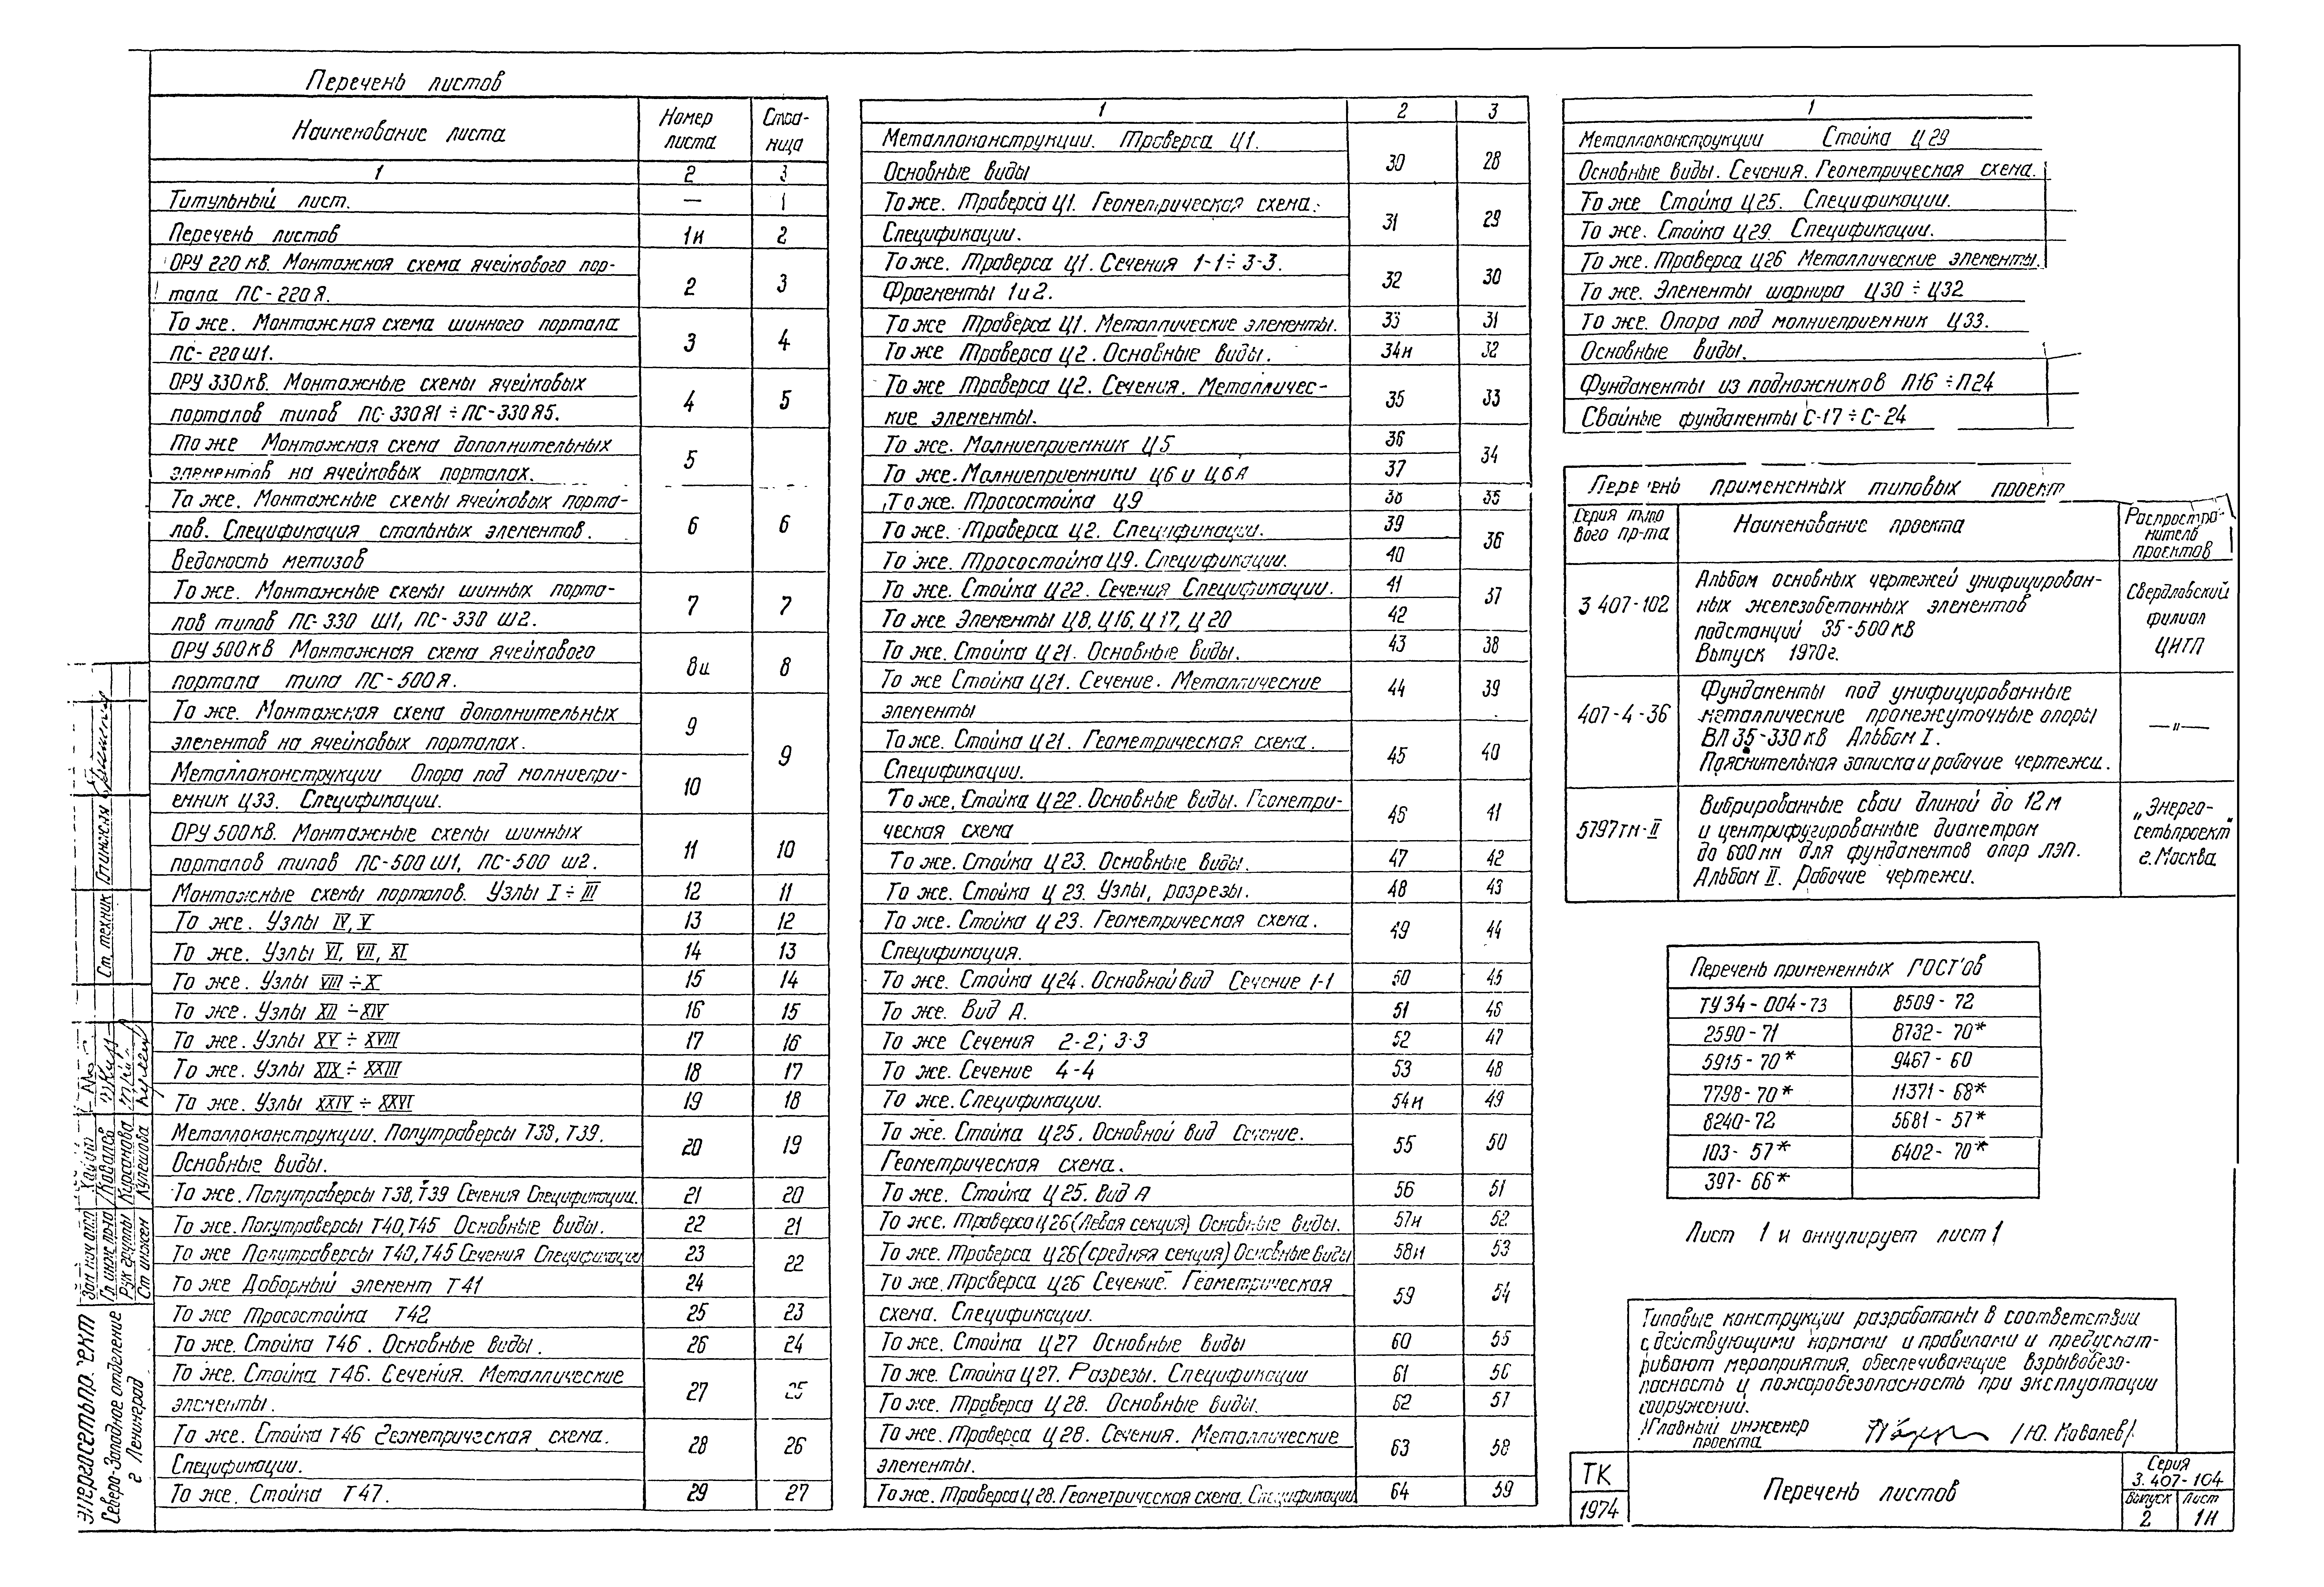 Перечень листов
Наименование листа Номер листа Стра- ница
1 2 3
Титульный лист. — 1
Перечень листов 1и 2
ОРУ 220 кв. Монтажная схема ячейкового пор-
тала ПС-220Я. 2 3
То же. Монтажная схема шинного портала
ПС-220Ш1. 3 4
ОРУ 330 кв. Монтажные схемы ячейковых
порталов типов ПС-330Я1 ÷ ПС-330Я5. 4 5
То же Монтажная схема дополнительных
элементов на ячейковых порталах. 5
То же. Монтажные схемы ячейковых порта-
лов. Спецификация стальных элементов. 6 6
Ведомость метизов
То же. Монтажные схемы шинных порта-
лов типов ПС-330 Ш1, ПС-330 Ш2. 7 7
ОРУ 500 кв Монтажная схема ячейкового
портала типа ПС-500Я. 8и 8
То же. Монтажная схема дополнительных
элементов на ячейковых порталах. 9 9
Металлоконструкции Опора под молниепри-
емник Ц33. Спецификации. 10
ОРУ 500 кв. Монтажные схемы шинных
порталов типов ПС-500 Ш1, ПС-500 Ш2. 11 10
Монтажные схемы порталов. Узлы I ÷ III 12 11
То же. Узлы IV, V 13 12
То же. Узлы VI, VII, XI 14 13
То же. Узлы VIII ÷ X 15 14
То же. Узлы XII ÷ XIV 16 15
То же. Узлы XV ÷ XVIII 17 16
То же. Узлы XIX ÷ XXIII 18 17
То же. Узлы XXIV ÷ XXVI 19 18
Металлоконструкции. Полутраверсы Т38, Т39.
Основные виды. 20 19
То же. Полутраверсы Т38, Т39 Сечения Спецификации. 21 20
То же. Полутраверсы Т40, Т45 Основные виды. 22 21
То же Полутраверсы Т40, Т45 Сечения Спецификации 23 22
То же Доборный элемент Т41 24
То же Тросостойка Т42 25 23
То же. Стойка Т46. Основные виды. 26 24
То же. Стойка Т46. Сечения. Металлические
элементы. 27 25
То же. Стойка Т46 Геометрическая схема.
Спецификации. 28 26
То же. Стойка Т47. 29 27
1 2 3
Металлоконструкции. Траверса Ц1.
Основные виды 30 28
То же. Траверса Ц1. Геометрическая схема.
Спецификации. 31 29
То же. Траверса Ц1. Сечения 1-1 ÷ 3-3.
Фрагменты 1 и 2. 32 30
То же Траверса Ц1. Металлические элементы. 33 31
То же Траверса Ц2. Основные виды. 34и 32
То же Траверса Ц2. Сечения. Металличес-
кие элементы. 35 33
То же. Молниеприемник Ц5 36 34
То же. Молниеприемники Ц6 и Ц6А 37
То же. Тросостойка Ц9 38 35
То же. Траверса Ц2. Спецификации. 39 36
То же. Тросостойка Ц9. Спецификации. 40
То же. Стойка Ц22. Сечения Спецификации. 41 37
То же Элементы Ц8, Ц16, Ц17, Ц20 42
То же. Стойка Ц21. Основные виды. 43 38
То же Стойка Ц21. Сечение. Металлические
элементы 44 39
То же. Стойка Ц21. Геометрическая схема.
Спецификации. 45 40
То же. Стойка Ц22. Основные виды. Геометри-
ческая схема 46 41
То же. Стойка Ц23. Основные виды. 47 42
То же. Стойка Ц23. Узлы, разрезы. 48 43
То же. Стойка Ц23. Геометрическая схема.
Спецификация. 49 44
То же. Стойка Ц24. Основной вид Сечение 1-1 50 45
То же. Вид А. 51 46
То же Сечения 2-2; 3-3 52 47
То же. Сечение 4-4 53 48
То же. Спецификации. 54и 49
То же. Стойка Ц25. Основной вид Сечение.
Геометрическая схема. 55 50
То же. Стойка Ц25. Вид А 56 51
То же. Траверса Ц26 (Левая секция) Основные виды. 57и 52
То же. Траверса Ц26 (средняя секция) Основные виды 58и 53
То же. Траверса Ц26 Сечение. Геометрическая
схема. Спецификации. 59 54
То же. Стойка Ц27 Основные виды 60 55
То же. Стойка Ц27. Разрезы. Спецификации 61 56
То же. Траверса Ц28. Основные виды. 62 57
То же. Траверса Ц28. Сечения. Металлические
элементы. 63 58
То же. Траверса Ц28. Геометрическая схема. Спецификации 64 59
1
Металлоконструкции Стойка Ц29
Основные виды. Сечения. Геометрическая схема.
То же Стойка Ц25. Спецификации.
То же. Стойка Ц29. Спецификации.
То же. Траверса Ц26 Металлические элементы.
То же. Элементы шарнира Ц30 ÷ Ц32
То же. Опора под молниеприемник Ц33.
Основные виды.
Фундаменты из подножников П16 ÷ П24
Свайные фундаменты С-17 ÷ С-24
Перечень примененных типовых проект
Серия типо вого пр-та Наименование проекта Распростра- нитель проектов
3 407-102 Альбом основных чертежей унифицирован-
ных железобетонных элементов
подстанций 35-500 кв
Выпуск 1970г.
Свердловский
филиал
ЦИТП
407-4-36 Фундаменты под унифицированные
металлические промежуточные опоры
ВЛ 35-330 кв Альбом I.
Пояснительная записка и рабочие чертежи.
—"—
5797тм-II Вибрированные сваи длиной до 12 м
и центрифугированные диаметром
до 600 мм для фундаментов опор ЛЭП.
Альбом II. Рабочие чертежи.
„Энерго-
сетьпроект"
г. Москва
Перечень примененных ГОСТ'ов
ТУ 34-004-73 8509-72
2590-71 8732-70*
5915-70* 9467-60
7798-70* 11371-68*
8240-72 5681-57*
103-57* 6402-70*
397-66*
Лист 1 и аннулирует лист 1
Типовые конструкции разработаны в соответствии
с действующими нормами и правилами и предусмат-
ривают мероприятия, обеспечивающие взрывобезо-
пасность и пожаробезопасность при эксплуатации
сооружений.
Главный инженер
проекта /Ю. Ковалев/
ТК
1974
Перечень листов
Серия
3.407-104
Выпуск Лист
2 1И
Энергосетьпр. ект
Северо-Западное отделение
г Ленинград
Зам нач отп
Гл. инж пр-та Ковалев
Рук группы Кирсанова
Ст инжен Кулешова
Ст. техник